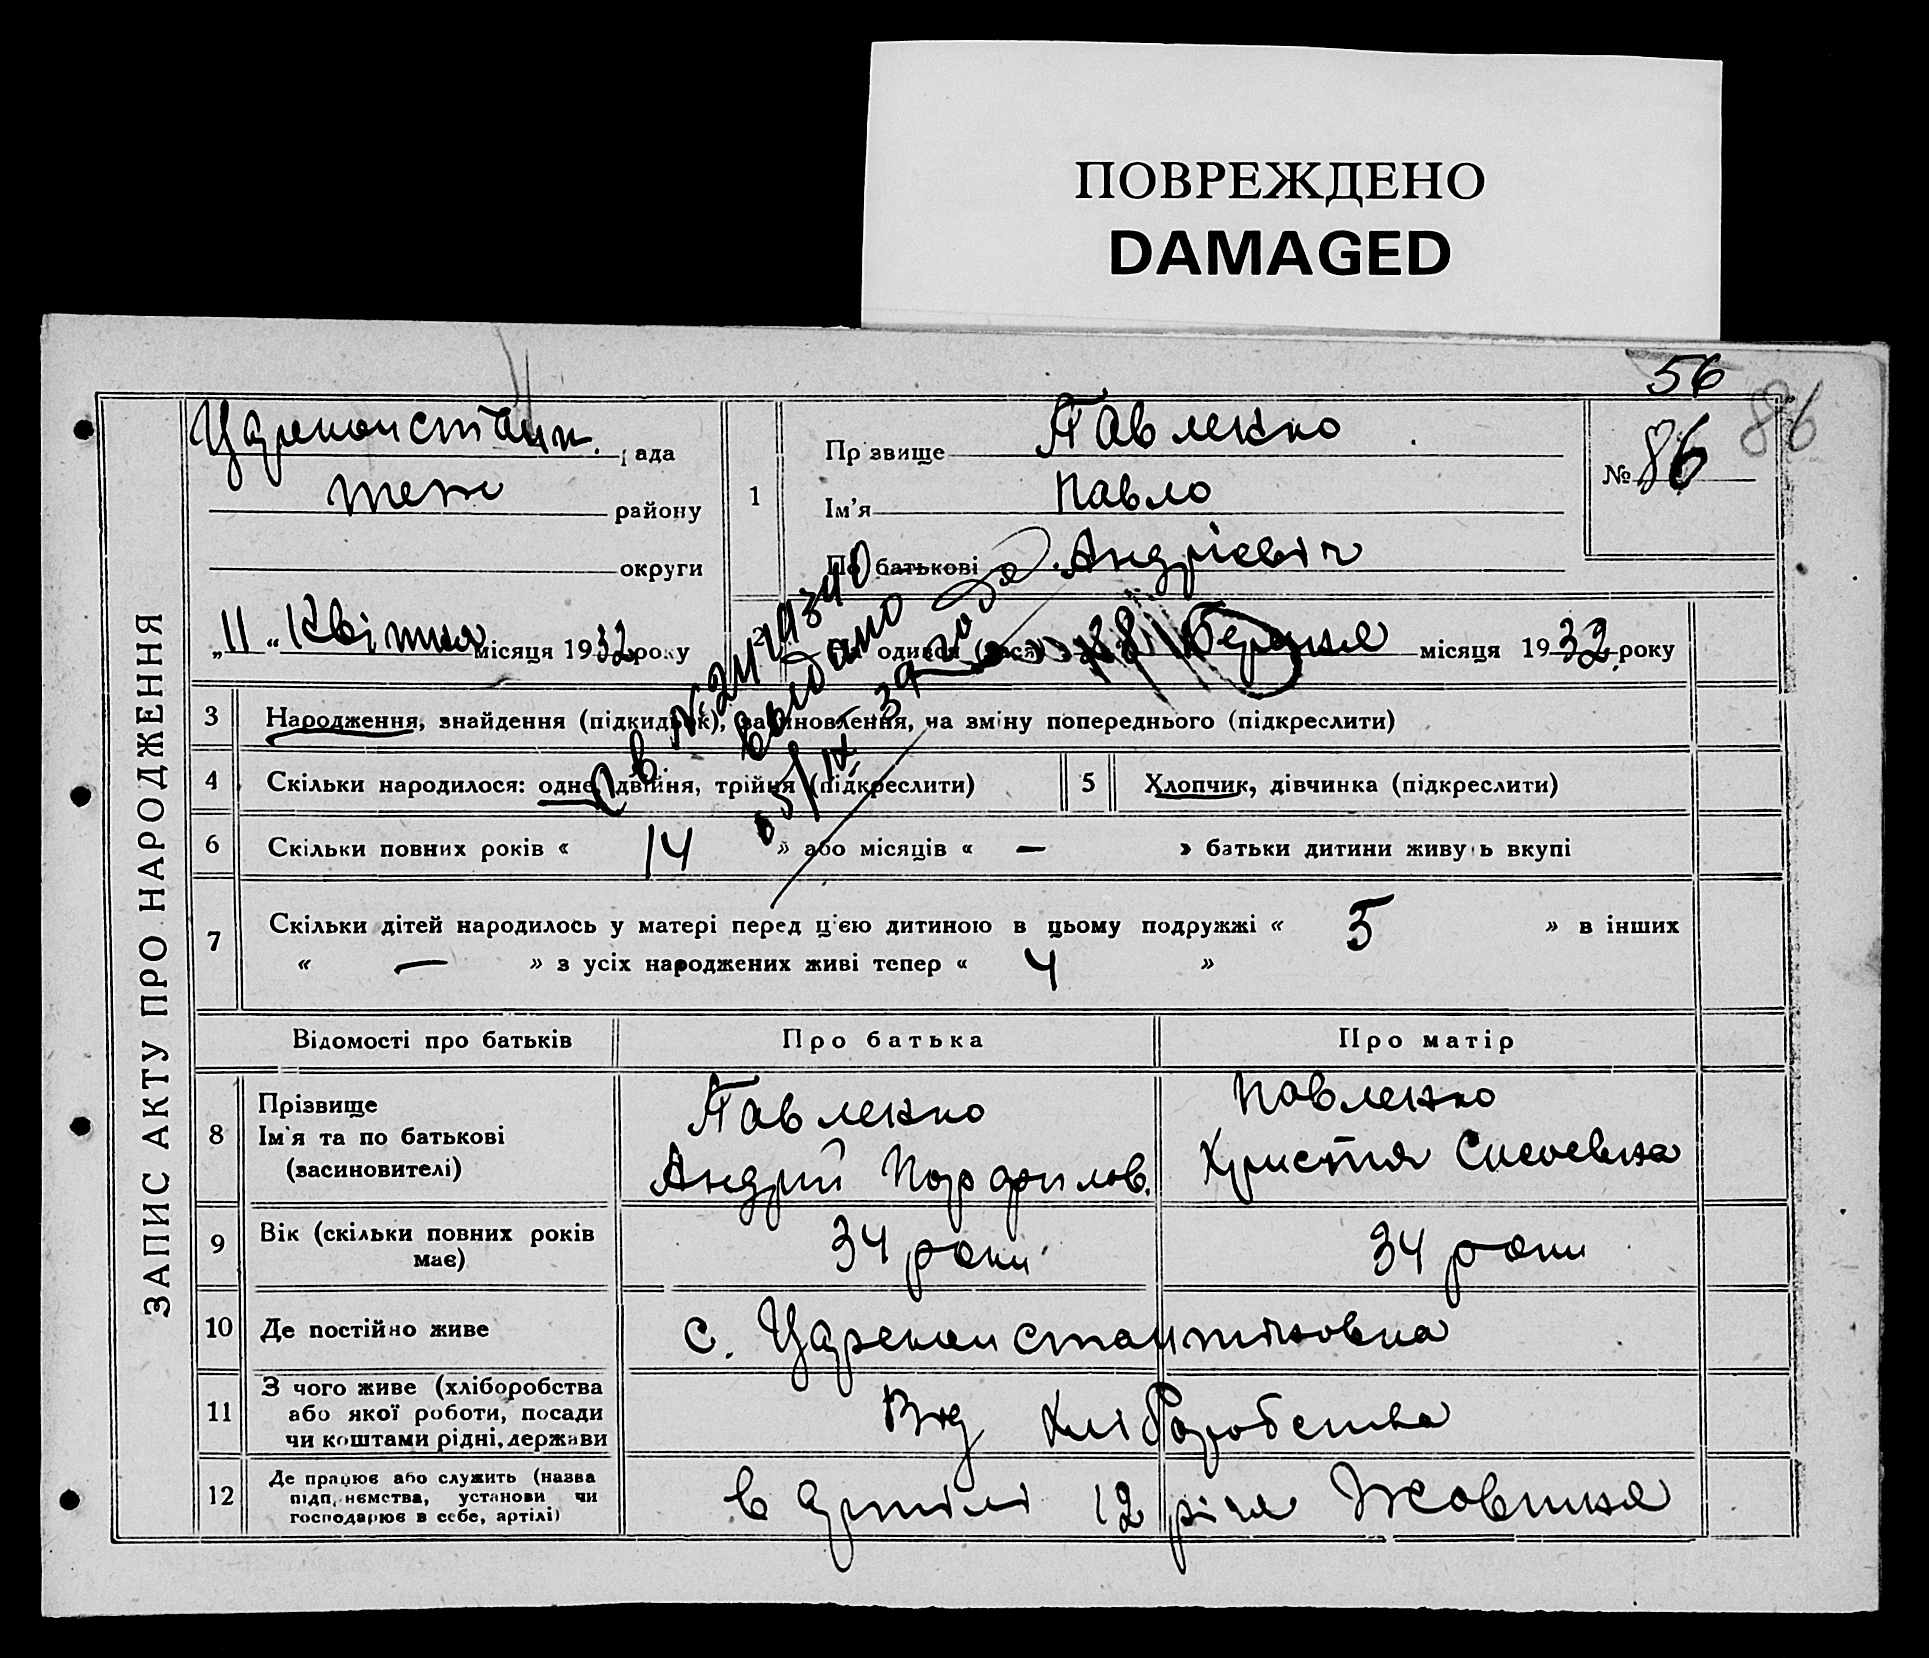 ПОВРЕЖДЕНО
DAMAGED
56
86
ЗАПИС АКТУ ПРО НАРОДЖЕННЯ
Цареконстант. рада
теж району
округи
„11“ Квітня місяця 1932 року
1
Прізвище Павленко
Ім'я Павло
По батькові Андрієвіч
№ 86
одився березня місяця 1932 року
св. №
выдано
3 Народження, знайдення (підкидьок), засиновлення, на зміну попереднього (підкреслити)
4 Скільки народилося: одне, двійня, трійня (підкреслити)
5 Хлопчик, дівчинка (підкреслити)
6 Скільки повних років « 14 » або місяців « — » батьки дитини живуть вкупі
7 Скільки дітей народилось у матері перед ц'єю дитиною в цьому подружжі « 5 » в інших
« — » з усіх народжених живі тепер « 4 »
Відомості про батьків
Про батька
Про матір
8 Прізвище
Ім'я та по батькові
(засиновителі)
Павленко
Андрій Порфилов.
Павленко
Христя Сисоевна
9 Вік (скільки повних років
має)
34 роки
34 роки
10 Де постійно живе
с. Цареконстантіновка
11 З чого живе (хліборобства
або якої роботи, посади
чи коштами рідні, держави
Від хліборобства
12 Де працює або служить (назва
підприємства, установи чи
господарює в себе, артілі)
в артілі 12 річя Жовтня